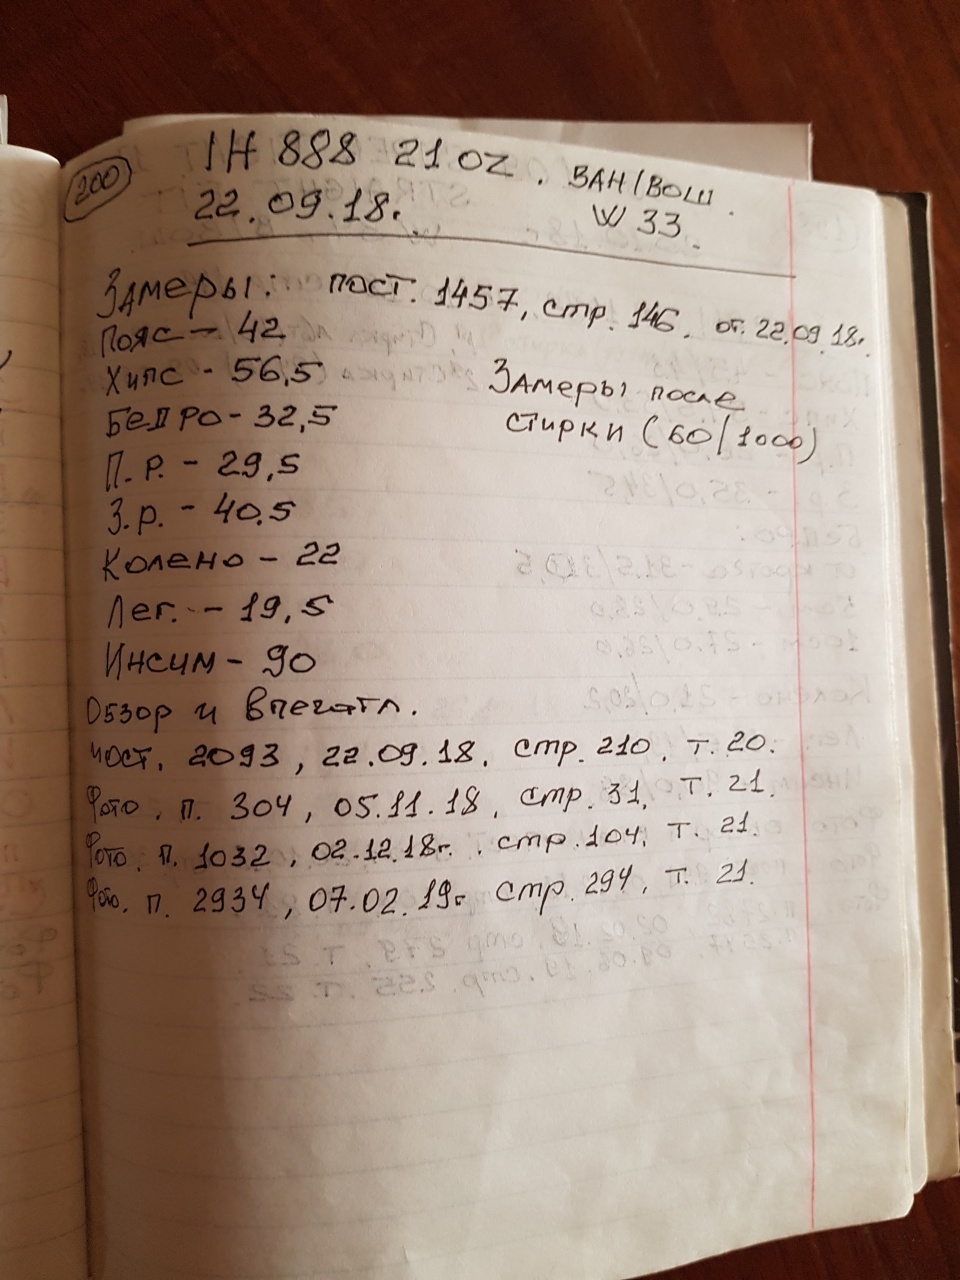 200
IH 888 21 OZ. ВАН/ВОШ.
22.09.18. W 33.
Замеры: пост. 1457, стр. 146. от. 22.09.18г.
Пояс - 42
Хипс - 56,5 Замеры после
Бедро - 32,5 стирки (60/1000)
П.р. - 29,5
З.р. - 40,5
Колено - 22
Лег. - 19,5
Инсим - 90
Обзор и впечатл.
пост. 2093, 22.09.18, стр. 210, т. 20.
Фото. п. 304, 05.11.18, стр. 31, т. 21.
Фото. п. 1032, 02.12.18г. стр. 104, т. 21.
Фото. п. 2934, 07.02.19г стр. 294, т. 21.